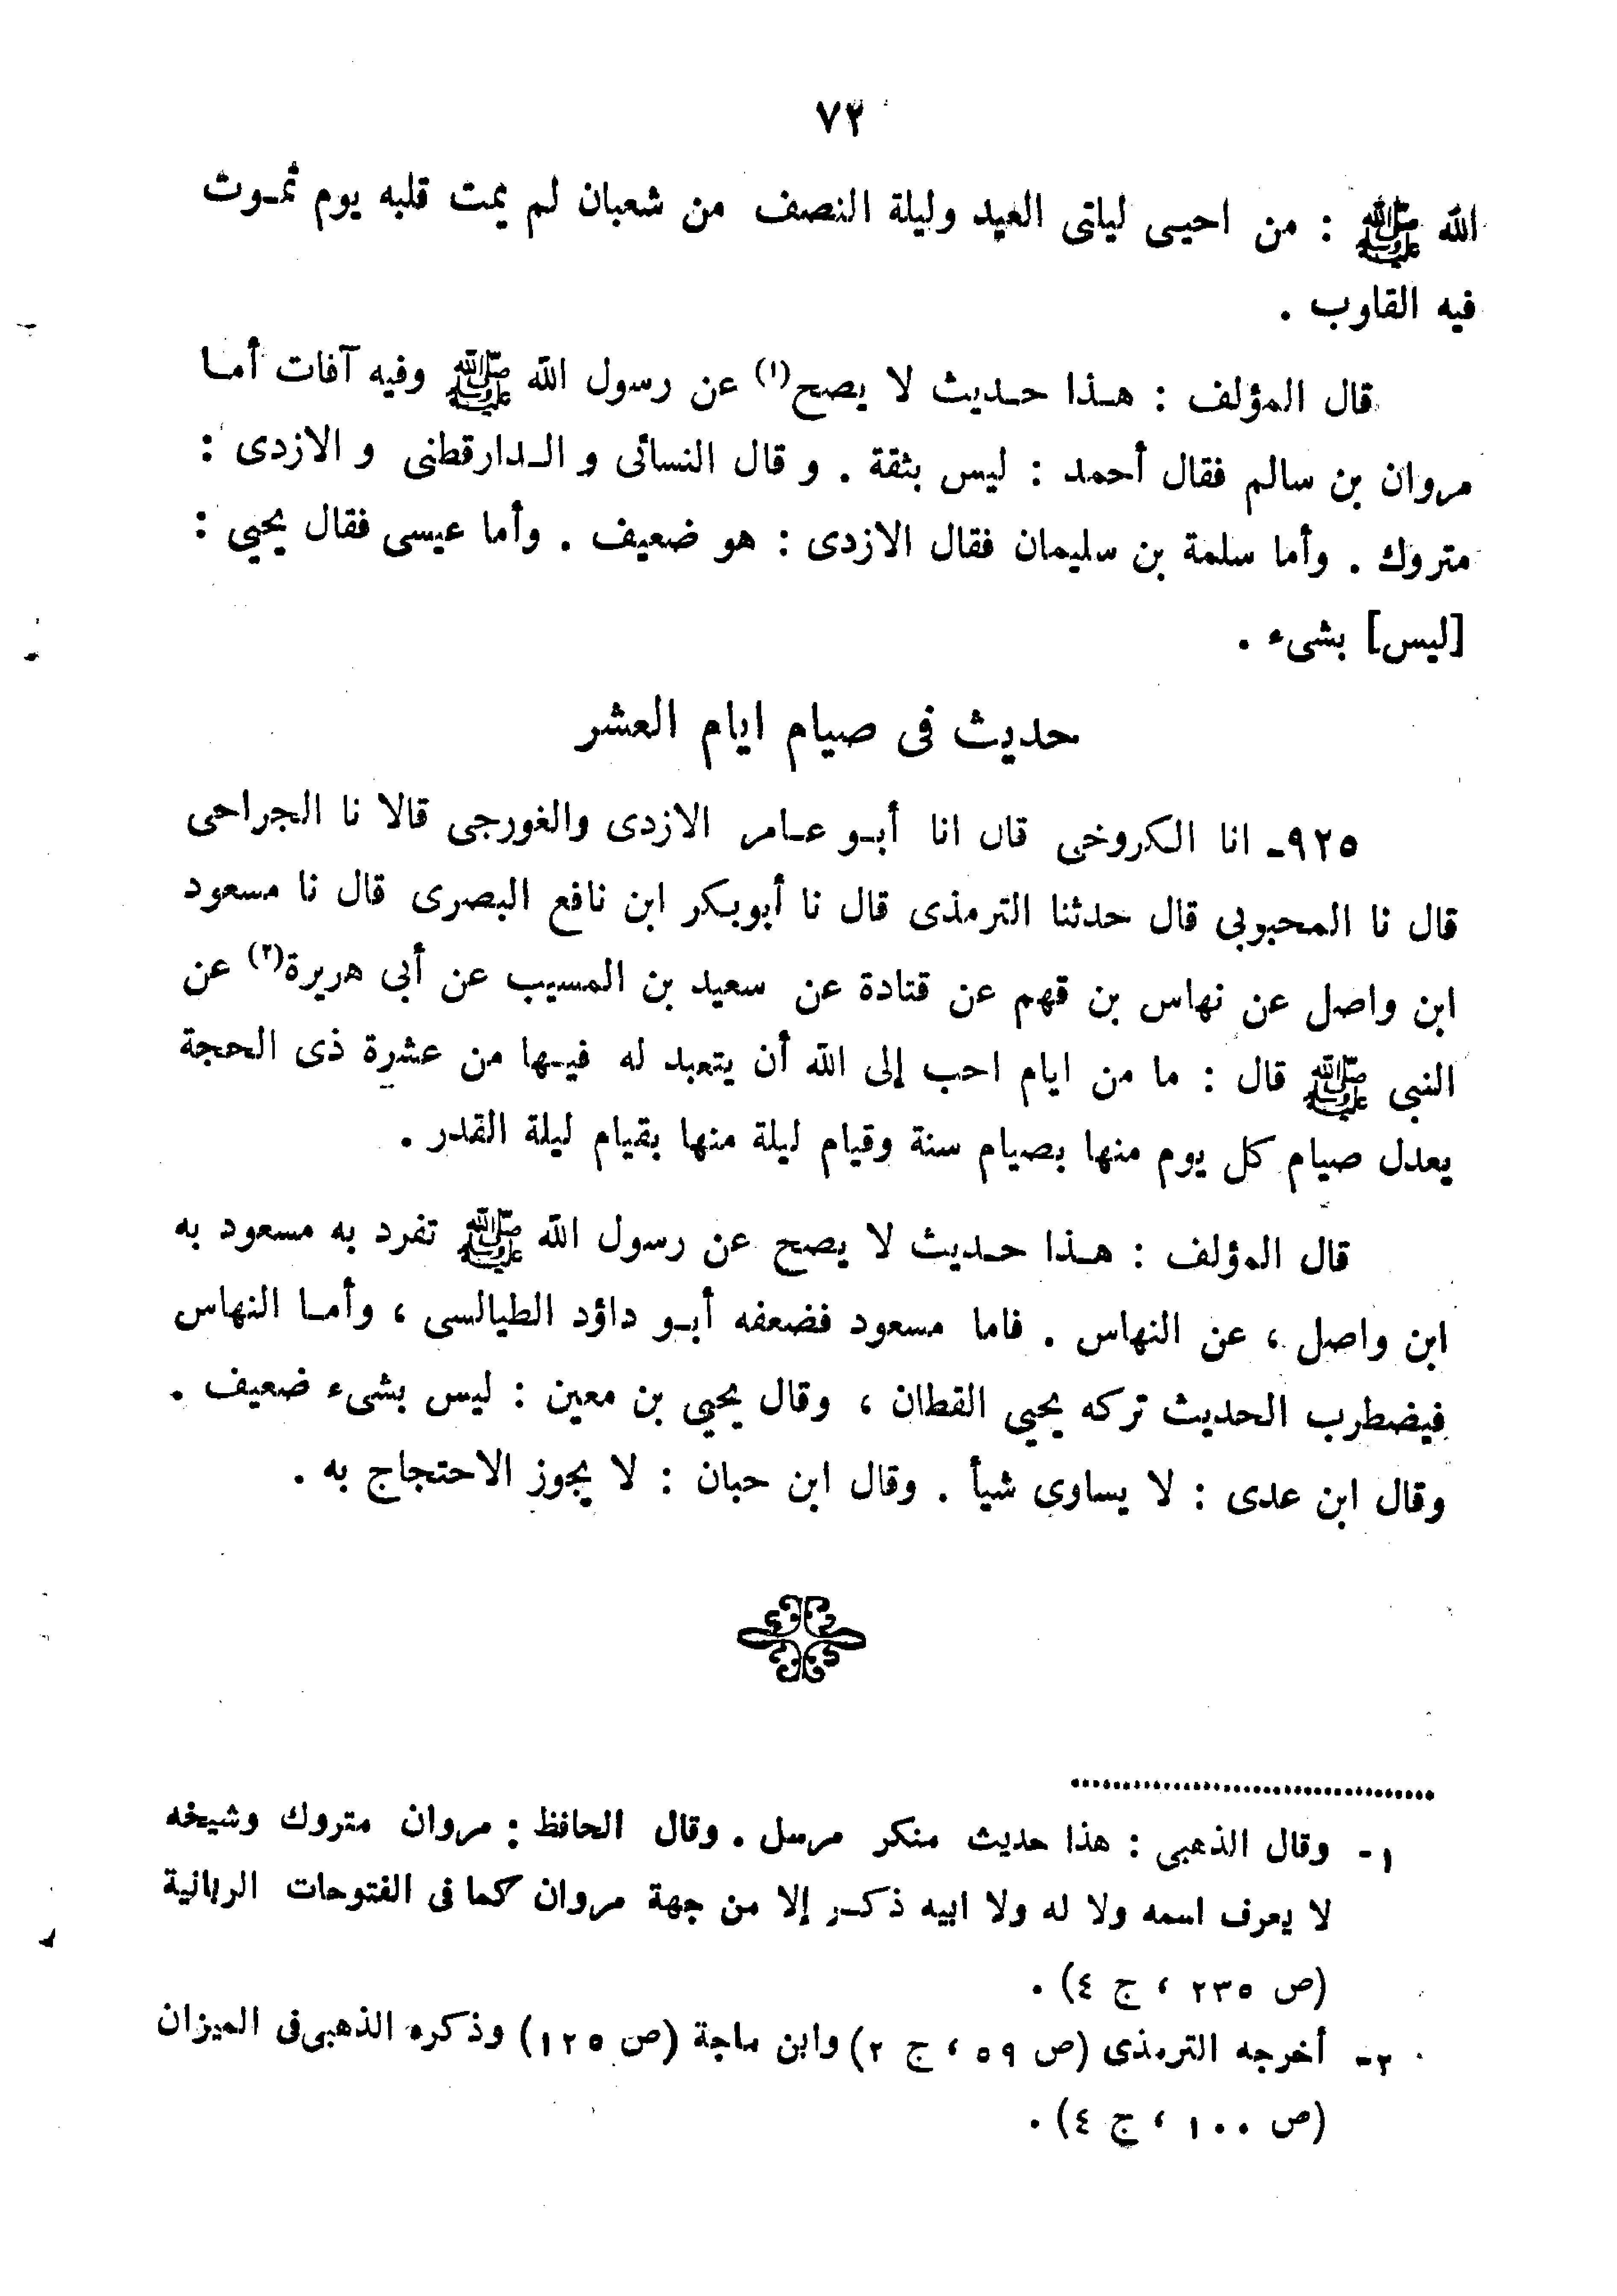 ٧٢
الله ﷺ : من احيى ليلتى العيد وليلة النصف من شعبان لم يمت قلبه يوم تمـوت
فيه القلوب .
قال المؤلف : هـذا حـديث لا يصح(١) عن رسول الله ﷺ وفيه آفات أمـا
مروان بن سالم فقال أحمد : ليس بثقة . و قال النسائى و الـدارقطنى و الازدى :
متروك . وأما سلمة بن سليمان فقال الازدى : هو ضعيف . وأما عيسى فقال يحيى :
[ليس] بشىء .
حديث فى صيام ايام العشر
٩٢٥ـ انا الكروخى قال انا أبـو عـامر الازدى والغورجى قالا نا الجراحى
قال نا المحبوبى قال حدثنا الترمذى قال نا أبوبكر ابن نافع البصرى قال نا مسعود
ابن واصل عن نهاس بن قهم عن قتادة عن سعيد بن المسيب عن أبى هريرة(٢) عن
النبى ﷺ قال : ما من ايام احب إلى الله أن يتعبد له فيـها من عشرة ذى الحجة
يعدل صيام كل يوم منها بصيام سنة وقيام ليلة منها بقيام ليلة القدر .
قال المؤلف : هـذا حـديث لا يصح عن رسول الله ﷺ تفرد به مسعود به
ابن واصل ، عن النهاس . فاما مسعود فضعفه أبـو داؤد الطيالسى ، وأمـا النهاس
فيضطرب الحديث تركه يحيى القطان ، وقال يحيى بن معين : ليس بشىء ضعيف .
وقال ابن عدى : لا يساوى شيأ . وقال ابن حبان : لا يجوز الاحتجاج به .
١ - وقال الذهبى : هذا حديث منكر مرسل . وقال الحافظ : مروان متروك وشيخه
لا يعرف اسمه ولا له ولا ابيه ذكـر إلا من جهة مروان كما فى الفتوحات الربانية
(ص ٢٣٥ ، ج ٤) .
٢- أخرجه الترمذى (ص ٥٩ ، ج ٢) وابن ماجة (ص ١٢٥) وذكره الذهبى فى الميزان
(ص ١٠٠ ، ج ٤) .